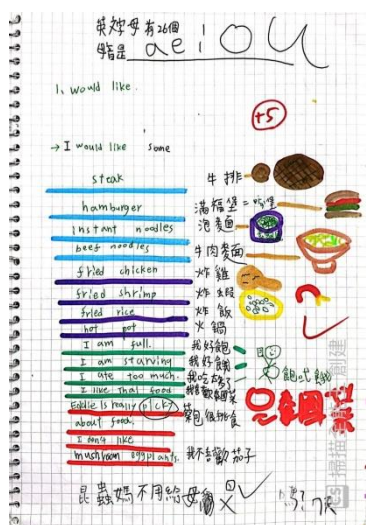 英文字母有26個
母音是 a e i o u
1. would like.
+5
→ I would like some
steak 牛排
hamburger 滿福堡=漢堡
instant noodles 泡麵
beef noodles 牛肉麵
fried chicken 炸雞
fried shrimp 炸蝦
fried rice 炸飯
hot pot 火鍋
I am full. 我好飽
I am starving 我好餓
I ate too much. 我吃太多了
I like that food
Eddie is really picky
about food. 很挑食
I don't like
mushroom eggplants. 我不喜歡茄子
昆蟲媽不用給